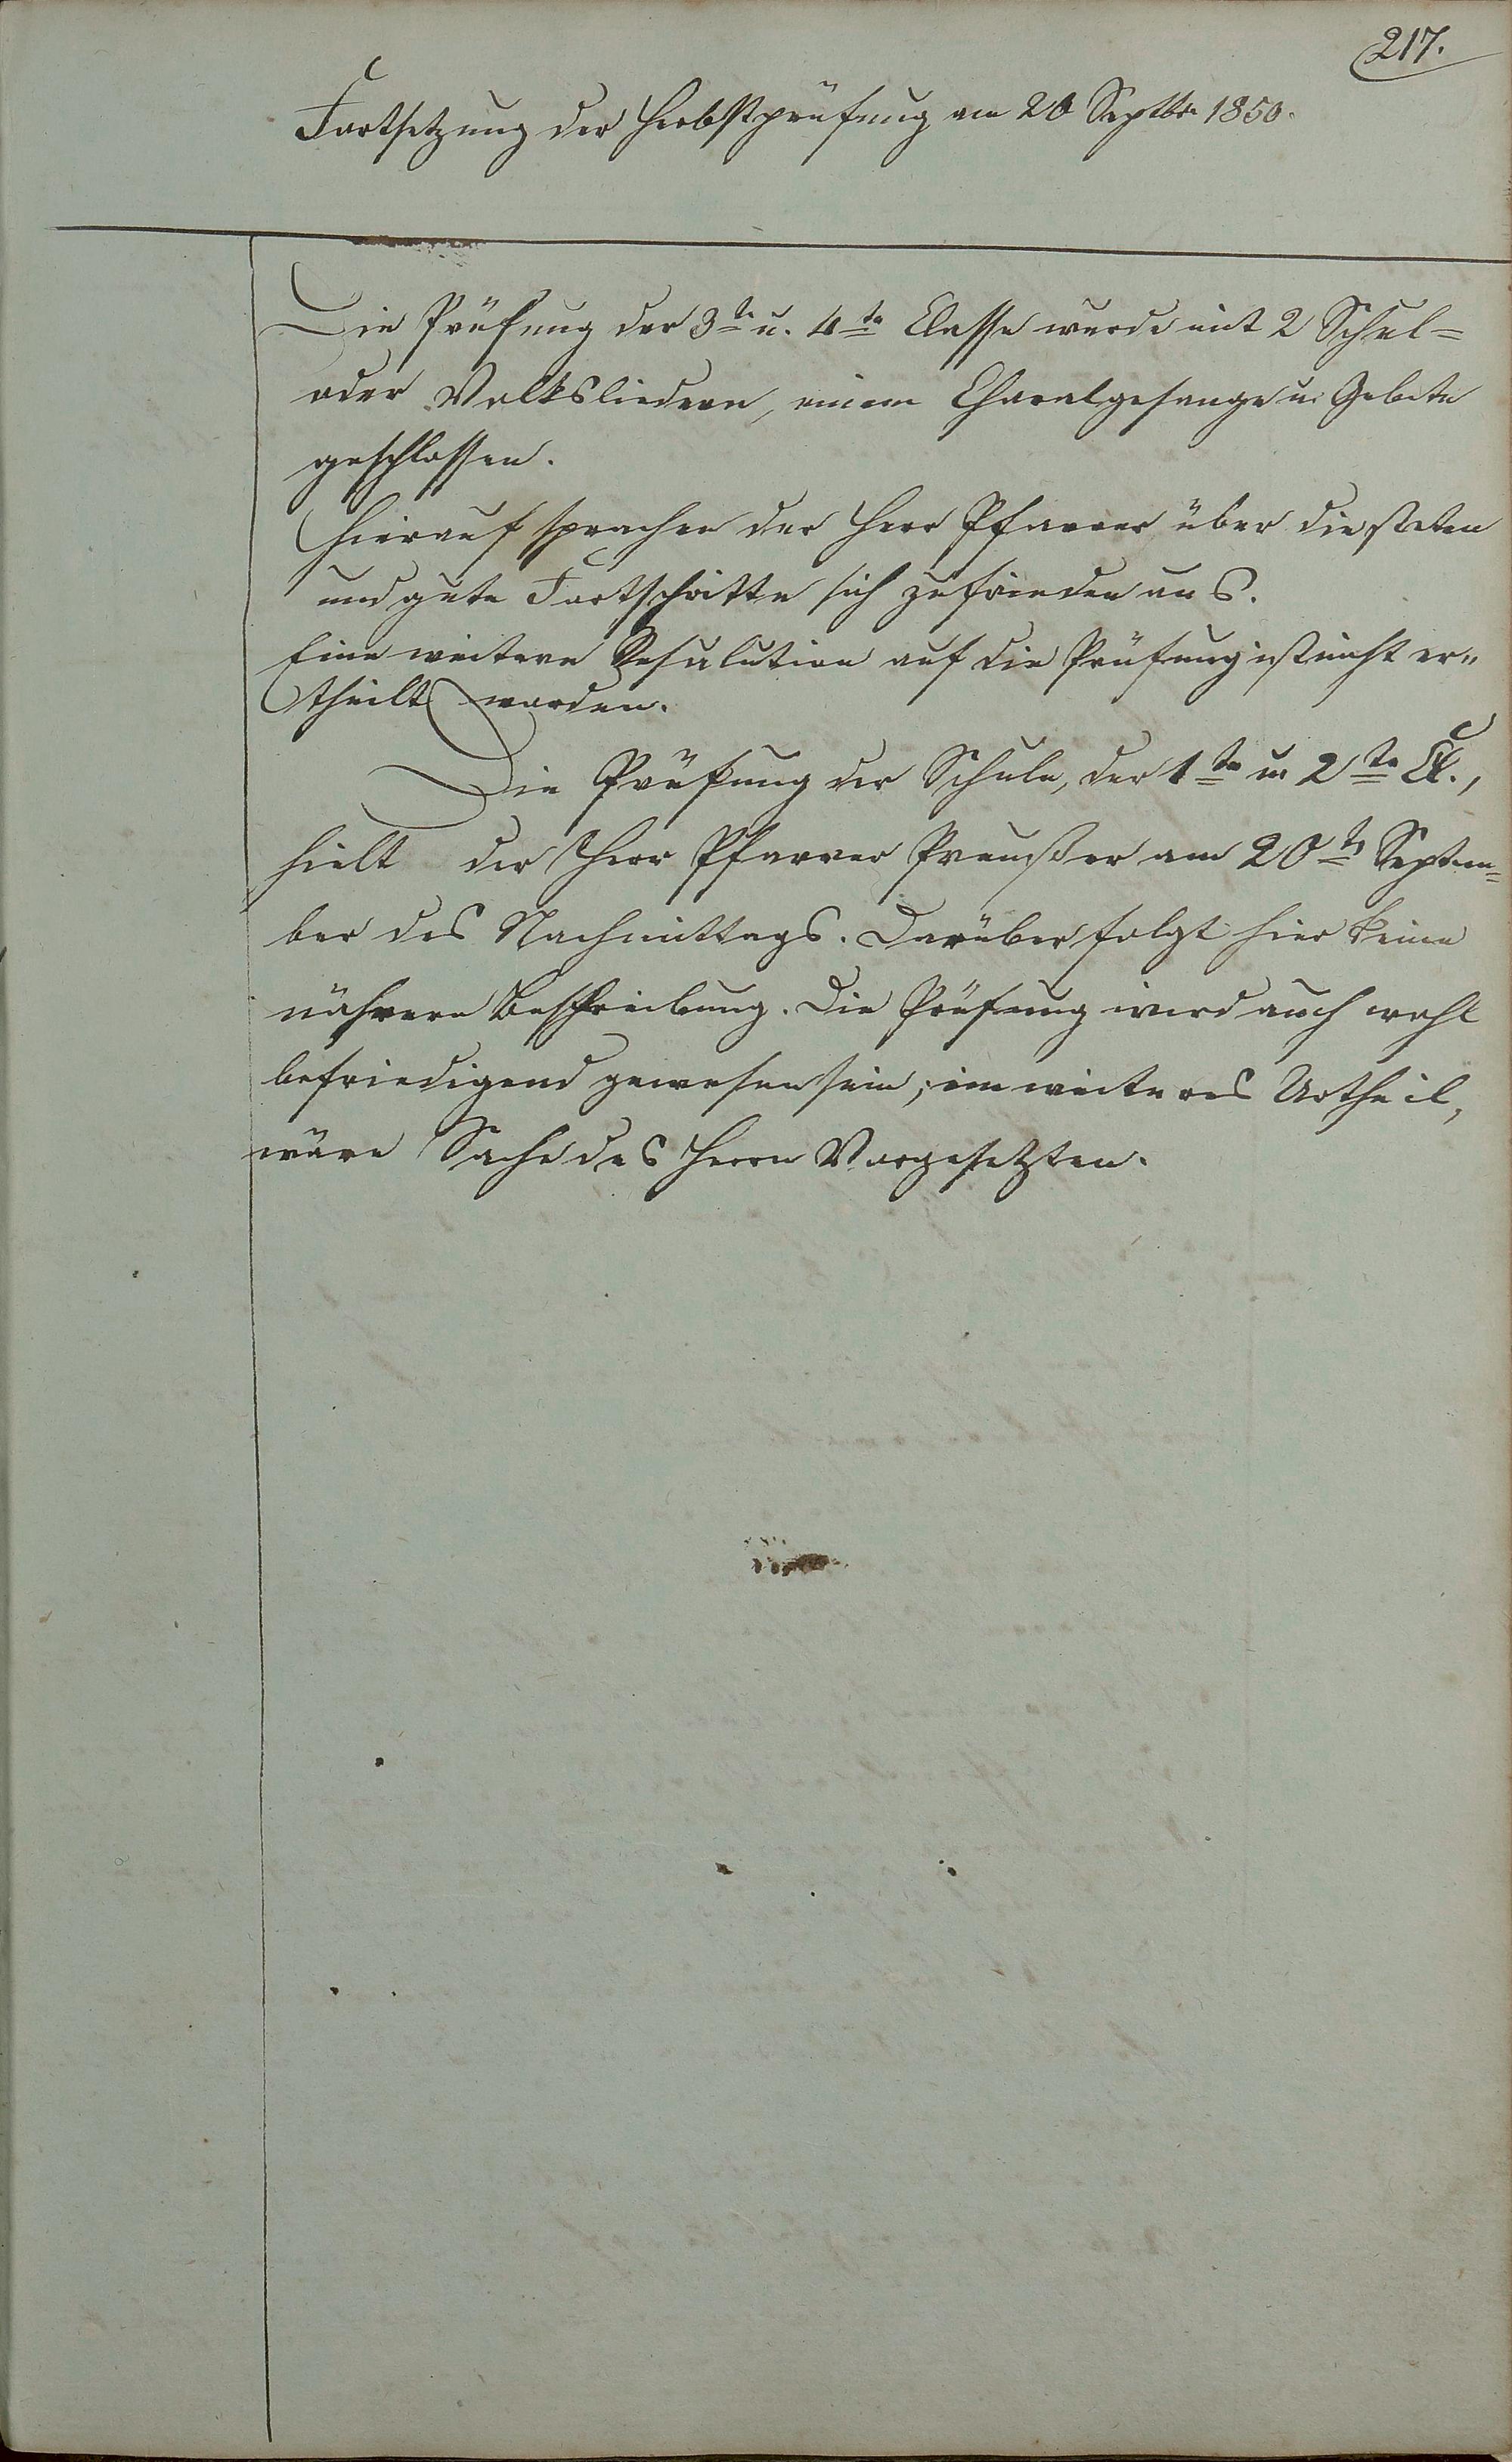 217.
Fortsetzung der Herbstprüfung am 20 Septbr. 1850.
Die Prüfung der 3te u. 4te Classe wurde mit 2 Schul=
oder Volksliedern, einem Choralgesange u. Gebete
geschlossen.
Hierauf sprachen der Herr Pfarrer über die steten
und gute Fortschritte sich zufrieden aus.
Eine weitere Resolution auf die Prüfung ist nicht er„
theilt worden.
Die Prüfung der Schule, der 1te u. 2te Cl.,
hielt der Herr Pfarrer Preußer am 20ten Septem=
ber des Nachmittags. Darüber folgt hier keine
nähere Beschreibung. Die Prüfung wird auch wohl
befriedigend gewesen sein; ein weiteres Urtheil,
wäre Sache des Herrn Vorgesetzten.